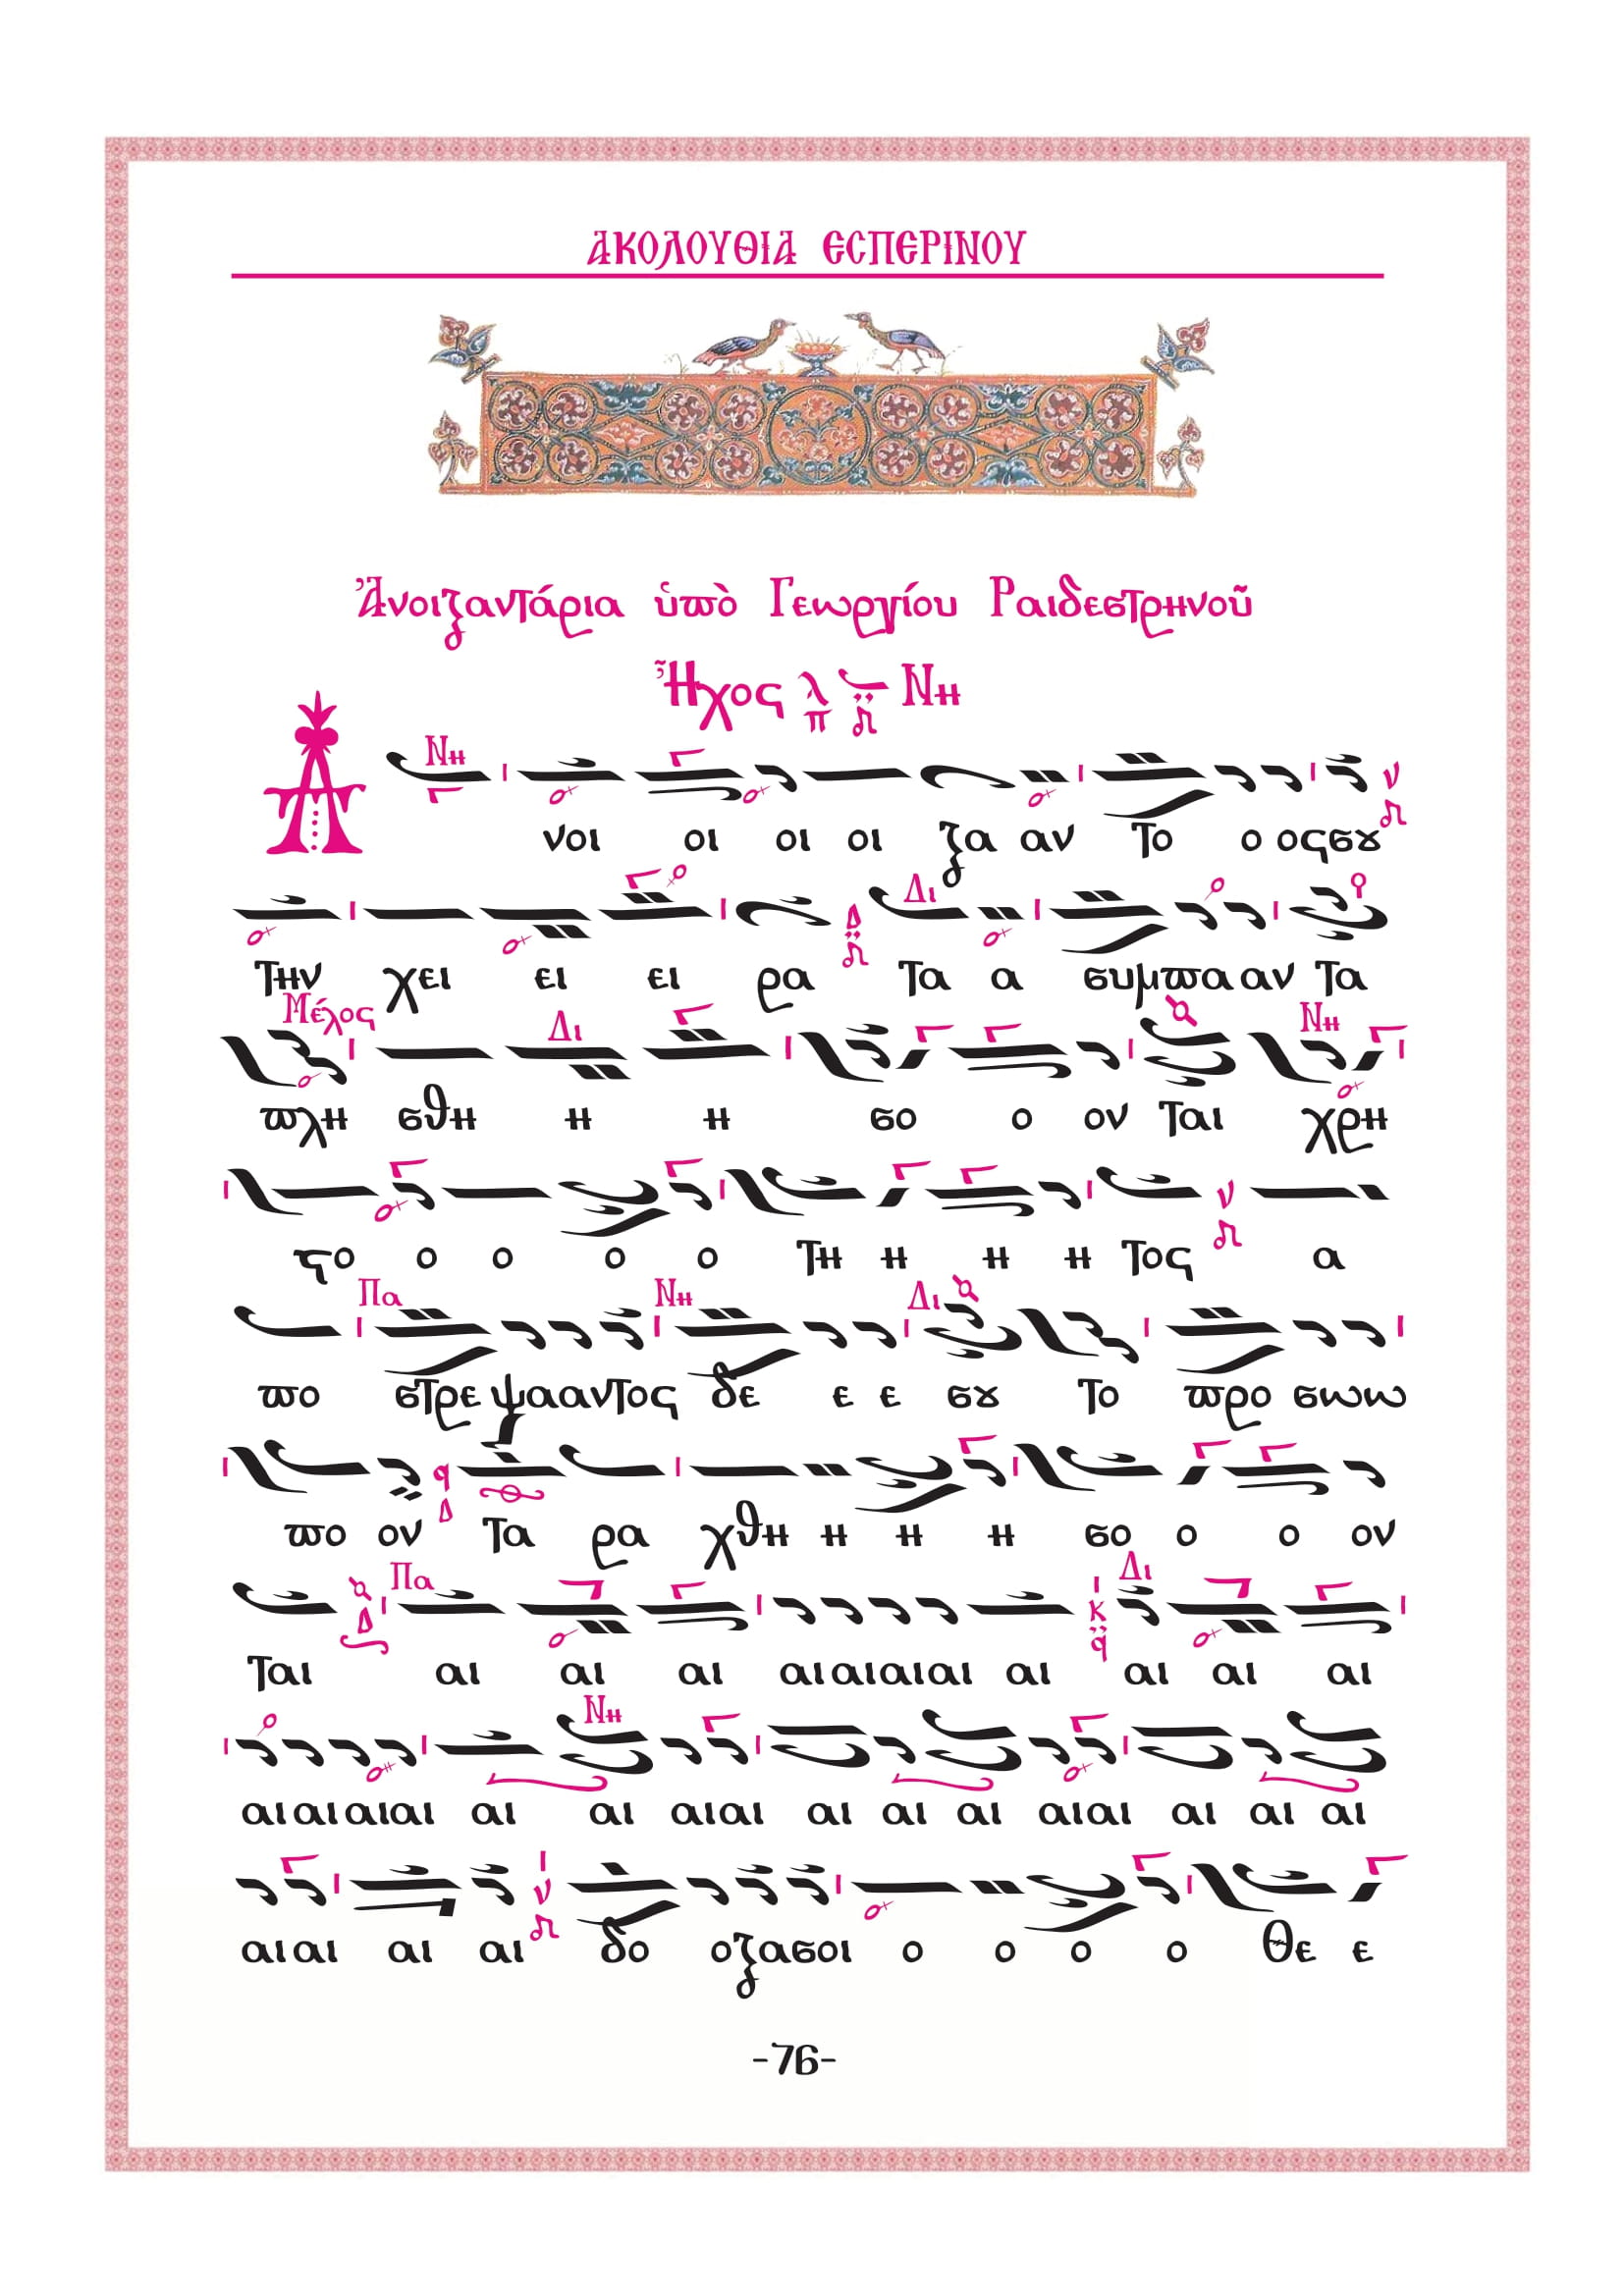 ΑΚΟΛΟΥΘΙΑ ΕΣΠΕΡΙΝΟΥ
Ἀνοιξαντάρια ὑπὸ Γεωργίου Ραιδεστηνοῦ
Ἦχος λ π Νη
Α
Νη
νοι οι οι οι ξα αν το ο οςσȣ
Δι
την χει ει ει ρα τα α συμπα αν τα
Μέλος Δι Νη
πλη σθη η η σο ο ον ται χρη
στο ο ο ο ο τη η η η τος α
Πα Νη Δι
πο στρε ψααντος δε ε ε σȣ το προ σωω
πο ον τα ρα χθη η η η σο ο ο ον
Πα Δι
ται αι αι αι αιαιαιαι αι αι αι αι
Νη
αιαιαιαι αι αι αιαι αι αι αι αιαι αι αι αι
αιαι αι αι δο οξασοι ο ο ο ο θε ε
-76-